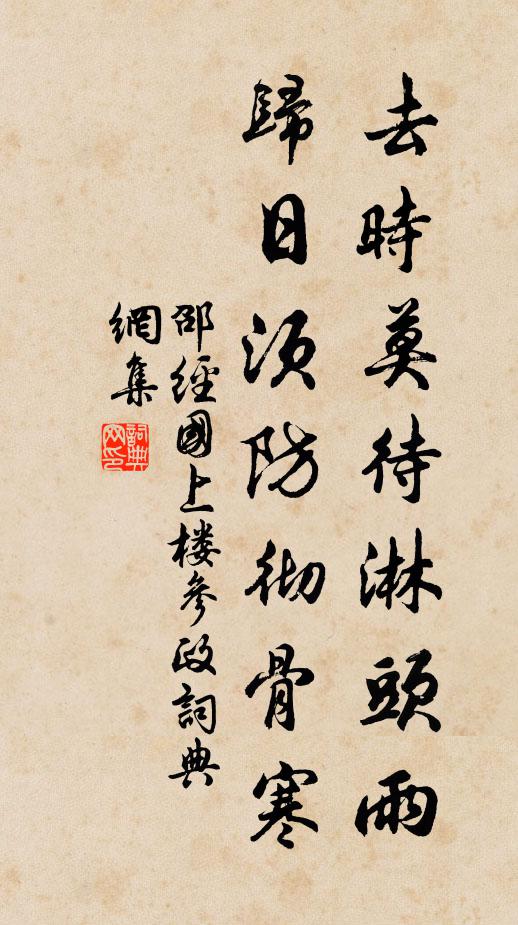 去時莫待淋頭雨
歸日須防彻骨寒
邵經國上楼參政詞典
網集
詞典
网印